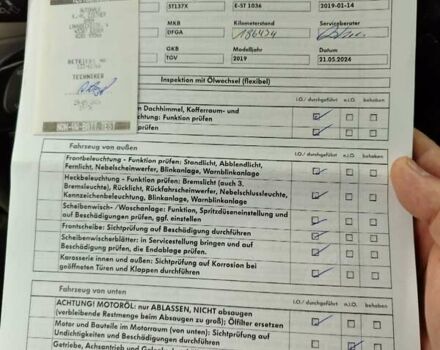 AUTOHAUS
BETRIEBS NR
TECHNIKER
NON-US-BATT.TEST
ST137X
E-ST 1036
2019-01-14
MKB
Kilometerstand
Serviceberater
DFGA
GKB
Modelljahr
Datum
TGV
2019
21.05.2024
Inspektion mit Ölwechsel (flexibel)
i.O./ durchgeführt n.i.O. behoben
Dachhimmel, Kofferraum- und
: Funktion prüfen
prüfen
Fahrzeug von außen
i.O./ durchgeführt n.i.O. behoben
Frontbeleuchtung - Funktion prüfen: Standlicht, Abblendlicht,
Fernlicht, Nebelscheinwerfer, Blinkanlage, Warnblinkanlage
Heckbeleuchtung - Funktion prüfen: Bremslicht (auch 3.
Bremsleuchte), Rücklicht, Rückfahrscheinwerfer, Nebelschlussleuchte,
Kennzeichenbeleuchtung, Blinkanlage, Warnblinkanlage
Scheibenwisch- /Waschanlage: Funktion, Spritzdüseneinstellung und
auf Beschädigungen prüfen, ggf. einstellen
Frontscheibe: Sichtprüfung auf Beschädigung durchführen
Scheibenwischerblätter: in Servicestellung bringen und auf
Beschädigung prüfen, die Endablage prüfen.
Karosserie innen und außen: Sichtprüfung auf Korrosion bei
geöffneten Türen und Klappen durchführen
Fahrzeug von unten
i.O./ durchgeführt n.i.O. behoben
ACHTUNG! MOTORÖL: nur ABLASSEN, NICHT absaugen
(verbleibende Restmenge beim Absaugen zu groß); Ölfilter ersetzen
Motor und Bauteile im Motorraum (von unten): Sichtprüfung auf
Undichtigkeiten und Beschädigungen durchführen
Getriebe, Achsantrieb und